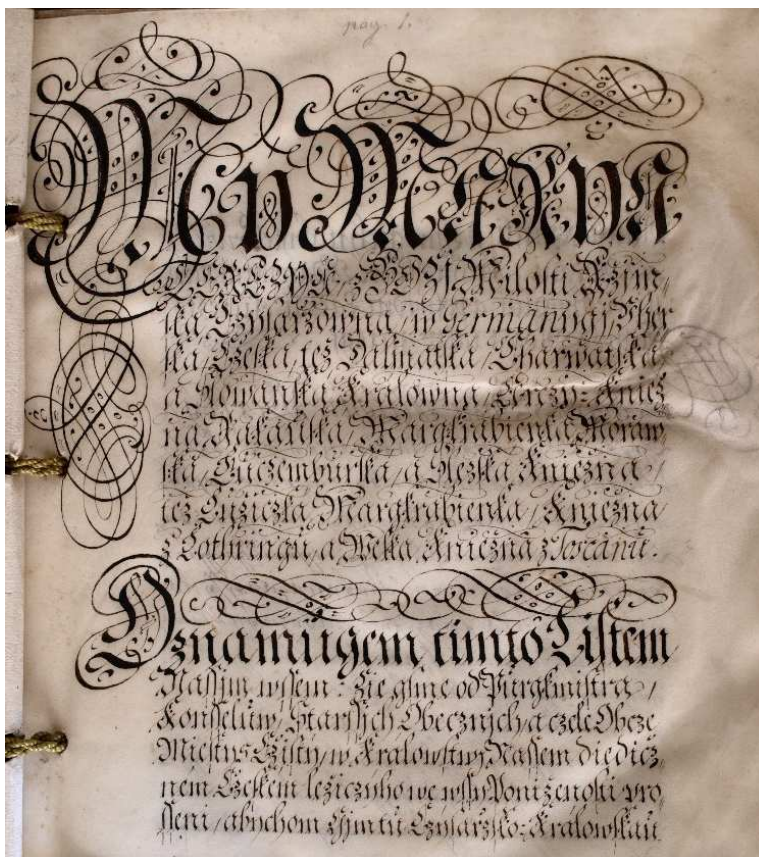 pag. 1.
My Marya
Terezya, z Bozj Milosti Rzjm-
ska Czysarzowna, w Germanygi, Vher
ska, Czeska, též Dalmatska, Charwatska
a Slowanska Kralowna, Knież
na Rakauska, Margkrabienka Moraw-
ska, Luczemburska, a Slezska Kniežna,
též Lužiczka Margkrabienka, Kniežna
z Lothringu, a Welka Kniežna z Toscanu.
Oznamugem timto Listem
Nassjm wssem: Že gsme od Purgkmistra,
Konsseluw, Starssych Obecznjch, a czele Obcze
Miestys Czisty, w Kralowstwj Nassem diedicz-
ném Czeskem ležiczyho we wssy Poniženosti pro-
sseni, abychom gjmtu Czysarzsko-Kralowskau